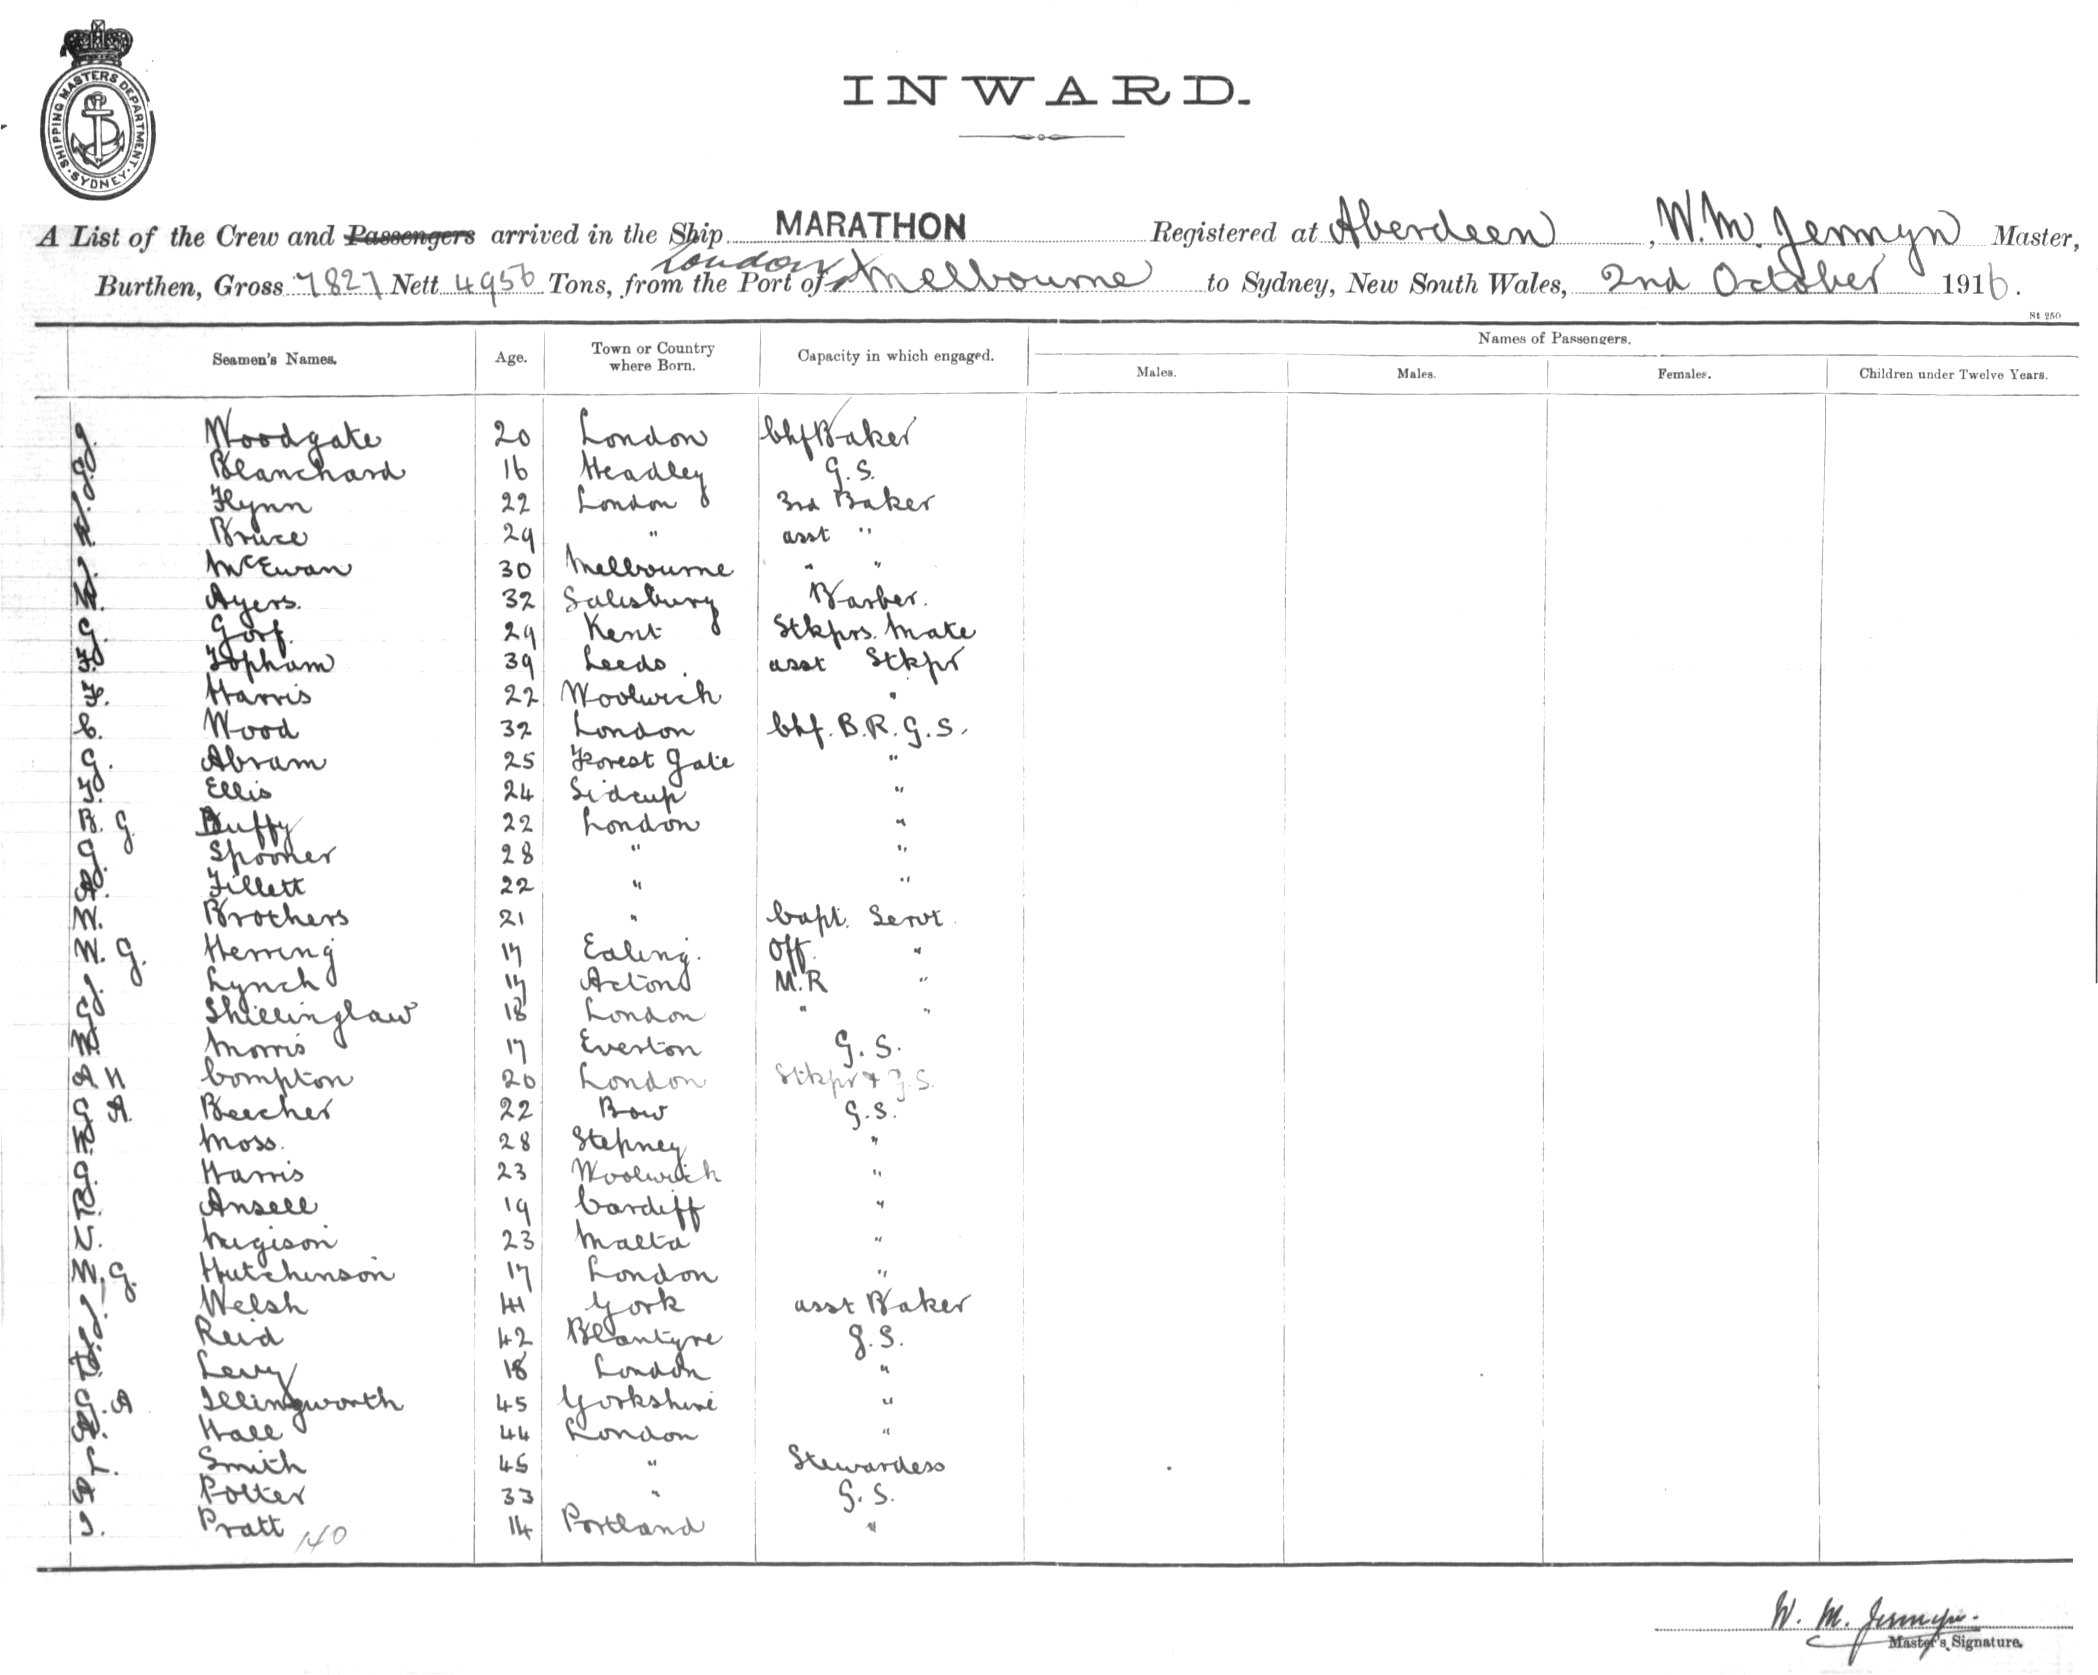 SHIPPING MASTERS DEPARTMENT · SYDNEY ·
INWARD.
A List of the Crew and Passengers arrived in the Ship MARATHON Registered at Aberdeen, W. M. Jermyn Master,
London &
Burthen, Gross 7827 Nett 4956 Tons, from the Port of Melbourne to Sydney, New South Wales, 2nd October 1916.
St 250
Names of Passengers.
Seamen's Names. Age. Town or Country where Born. Capacity in which engaged. Males. Males. Females. Children under Twelve Years.
J. Woodgate 20 London Chf Baker
G. Blanchard 16 Headley G.S.
J. Flynn 22 London 3rd Baker
Bruce 29 " asst "
J. McEwan 30 Melbourne " "
Ayers. 32 Salisbury Barber.
G. Gorf. 29 Kent Stkprs. Mate
F. Topham 39 Leeds asst Stkpr
F. Harris 22 Woolwich "
C. Wood 32 London Chf. B.R. G.S.
G. Abram 25 Forest Gate "
F. Ellis 24 Sidcup "
B. G Duffy 22 London "
G. Spooner 28 " "
A. Tillett 22 " "
W. Brothers 21 " Capt. Servt
W. G. Herring 17 Ealing. Off. "
J. Lynch 17 Acton M.R "
G. Shillinglaw 18 London " "
W. Morris 17 Everton G. S.
A H Compton 20 London Stkpr & G.S.
G A. Beecher 22 Bow G.S.
Moss. 28 Stepney "
G. Harris 23 Woolwich "
R. Ansell 19 Cardiff "
V. Migison 23 Malta "
W. G. Hutchinson 17 London "
J. Welsh 41 York asst Baker
J. Reid 42 Blantyre G.S.
Levy 18 London "
G. A Illingworth 45 Yorkshire "
A. Hall 44 London "
L. Smith 45 " Stewardess
A Potter 33 " G. S.
J. Pratt 14 Portland "
140
W. M. Jermyn.
Master's Signature.